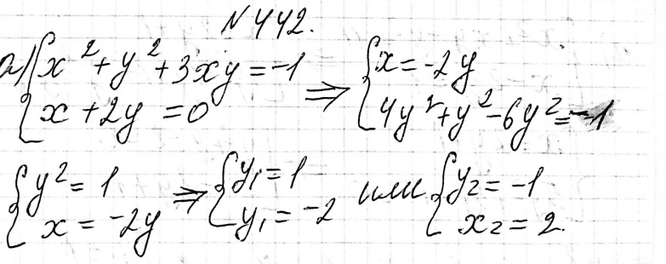 N 442.
а) { x² + y² + 3xy = -1 ; x + 2y = 0 ⇒ { x = -2y ; 4y² + y² - 6y² = -1
{ y² = 1 ; x = -2y ⇒ { y₁ = 1 ; y₁ = -2 или { y₂ = -1 ; x₂ = 2.